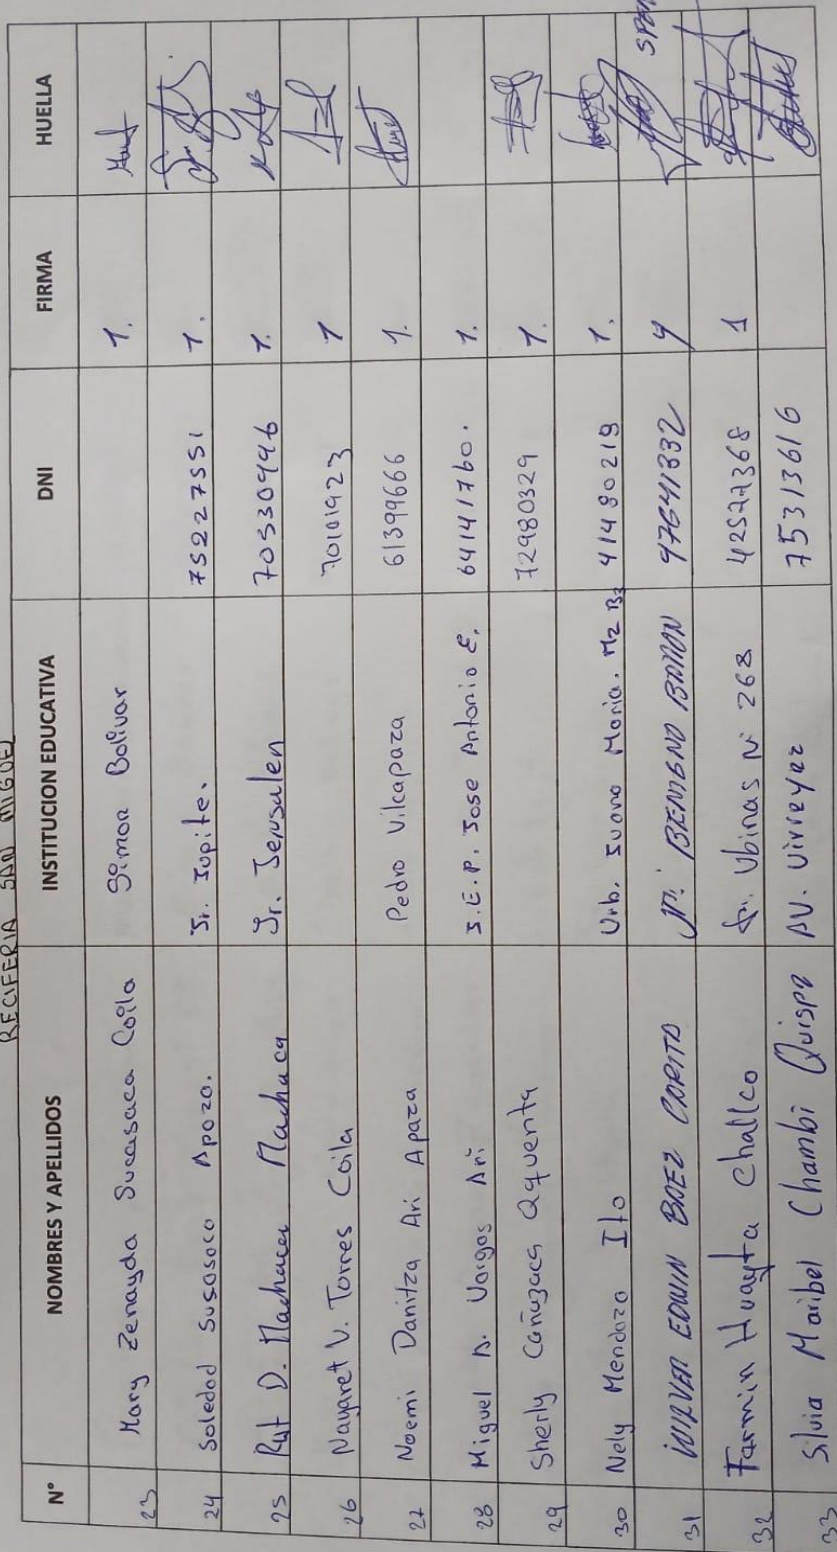 RECIFERIA SAN MIGUEL
N° NOMBRES Y APELLIDOS INSTITUCION EDUCATIVA DNI FIRMA HUELLA
23 Mary Zenayda Sucasaca Coila Simon Bolivar 1.
24 Soledad Sucasaca Apaza. Jr. Jupite. 75227551 1.
25 Rut D. Machaca Machaca Jr. Jerusalen 70530446 1.
26 Nayaret V. Torres Coila 70101923 1
27 Noemi Danitza Ari Apaza Pedro Vilcapaza 61399666 1.
28 Miguel A. Vargas Ari I.E.P. Jose Antonio E. 64141760. 1.
29 Sherly Cañazaca Qquenta 72980329 1.
30 Nely Mendoza Ito Urb. Juana Maria. Mz B3 41480219 1.
31 WILVER EDWIN BAEZ Jr. BENIGNO 47641332 4
32 Farmin Huayta Challco Jr. Ubinas N° 268 42577368 1
33 Silvia Maribel Chambi Quispe AV. Virreyez 75313616